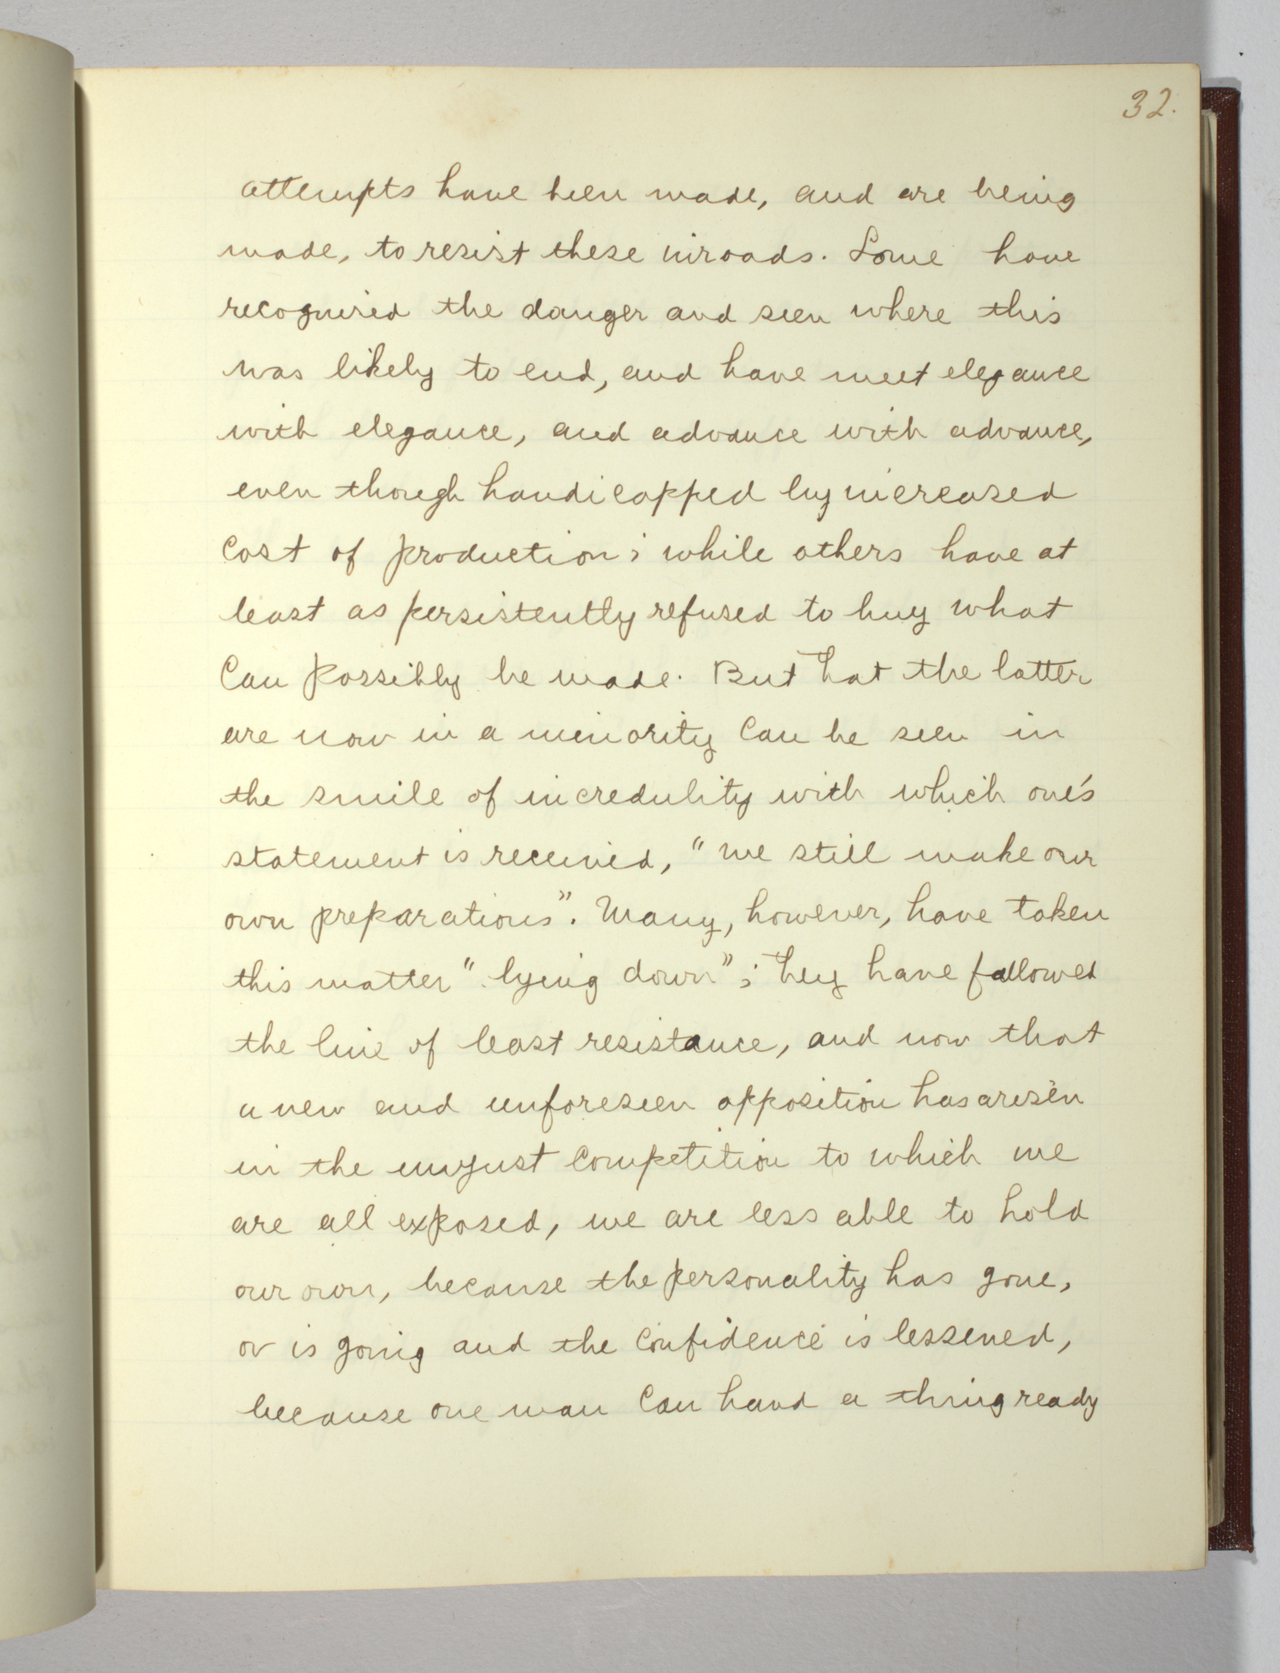 32.
attempts have been made, and are being
made, to resist these inroads. Some have
recognised the danger and seen where this
was likely to end, and have meet elegance
with elegance, and advance with advance,
even though handicapped by increased
cost of production; while others have at
least as persistently refused to buy what
can possibly be made. But that the latter
are now in a minority can be seen in
the smile of incredulity with which one's
statement is received, "we still make our
own preparations". Many, however, have taken
this matter "lying down"; they have followed
the line of least resistance, and now that
a new and unforeseen opposition has arisen
in the unjust competition to which we
are all exposed, we are less able to hold
our own, because the personality has gone,
or is going and the confidence is lessened,
because one man can hand a thing ready